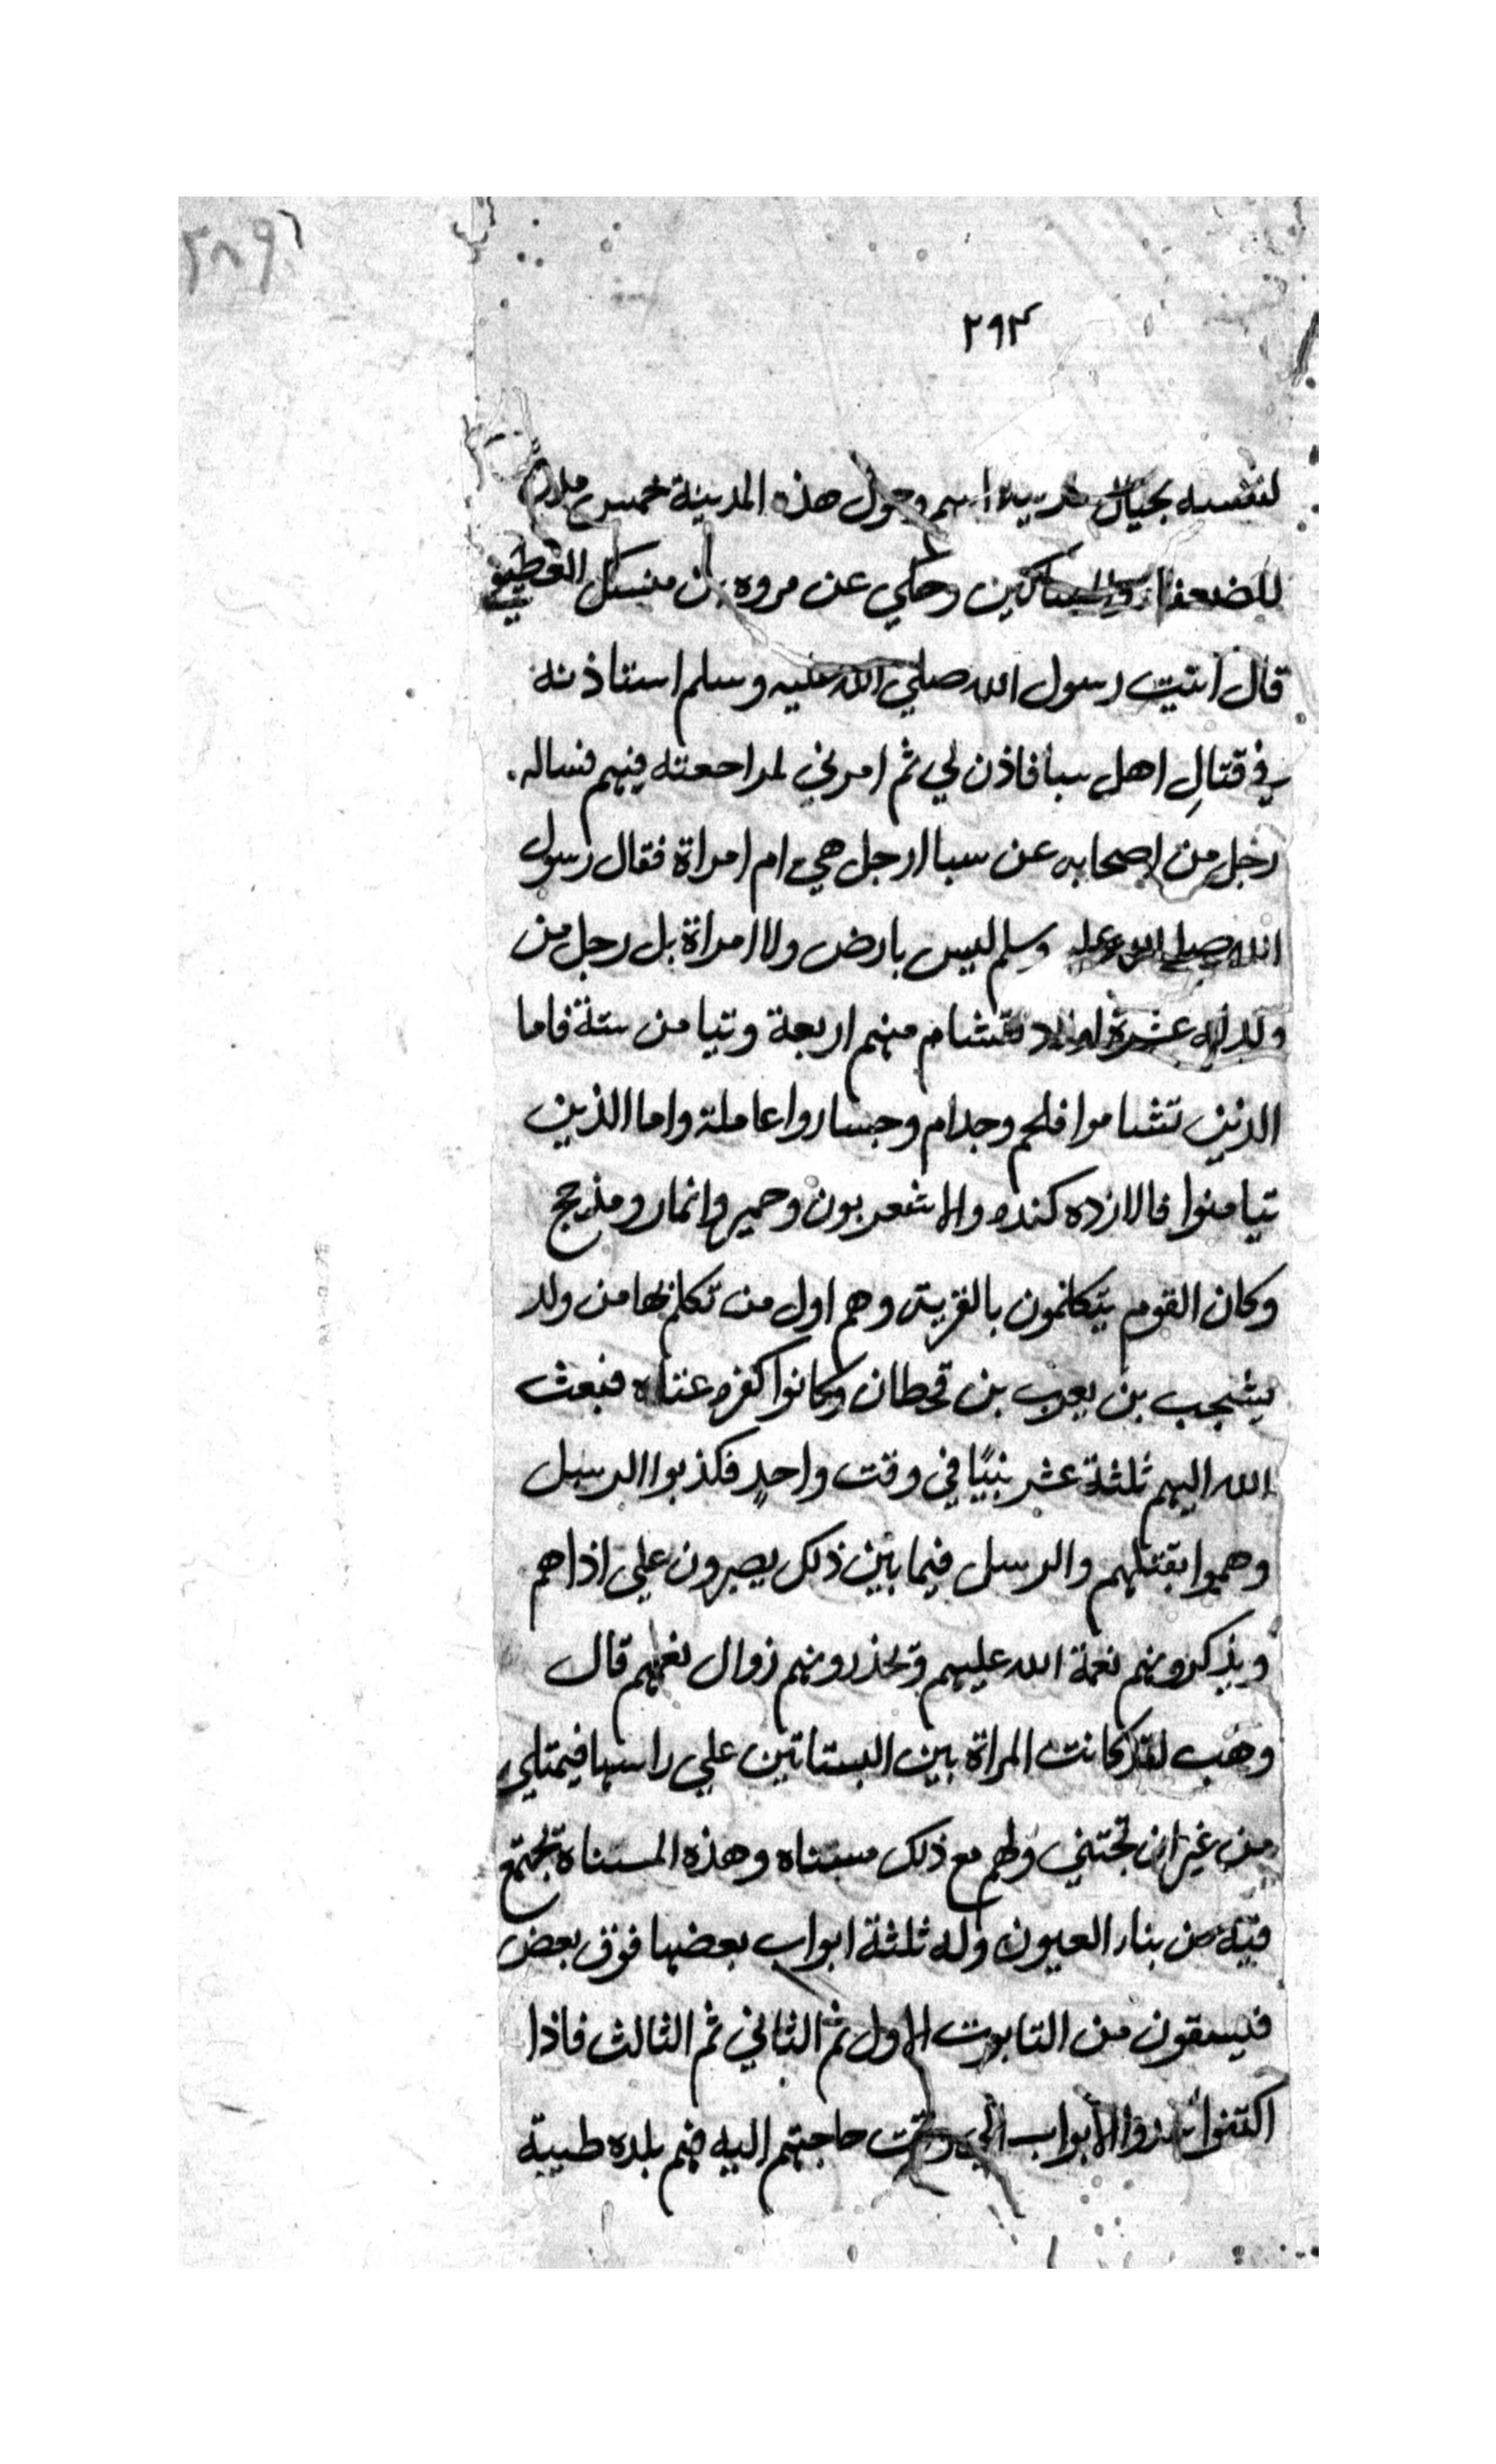 ٢٨٩
٢٩٣
لنفسه بحيال مدينة اسم وحول هذه المدينة خمس
للضعفا والمساكين وحكي عن مروه بن منسك القطيفي
قال اتيت رسول الله صلي الله عليه وسلم استاذنه
في قتالِ اهل سبا فاذن لي ثم امرني لمراجعته فيهم فساله
رجل من اصحابه عن سبا ارجل هي ام امراة فقال رسول
الله صلي الله عليه وسلم ليس بارض ولا امراة بل رجل من
ولد له عشرة اولاد تشام منهم اربعة وتيامن ستة فاما
الذين تشاموا فلحم وجدام وجسار واعاملة واما الذين
تيامنوا فالازده كنده والاشعريون وحمير وانمار ومذحج
وكان القوم يتكلمون بالعربية وهم اول من تكلم بها من ولد
يشجب بن يعرب بن قحطان وكانوا كفره عتاه فبعث
الله اليهم ثلثة عشر نبيًا في وقت واحدٍ فكذبوا الرسل
وهموا بقتلهم والرسل فيما بين ذلك يصبرون علي اذاهم
ويذكرونهم نعمة الله عليهم وتحذرونهم زوال نعمهم قال
وهب لقد كانت المراة بين البستاتين علي راسها فيمتلي
من غير ان تجتني ولهم مع ذلك مسناه وهذه المسناه تجتمع
فيه من بنار العيون وله ثلثة ابواب بعضها فوق بعض
فيسقون من التابوت الاول ثم الثاني ثم الثالث فاذا
اكتفوا سدوا الابواب الي وقت حاجتهم اليه فهم بلده طيبة